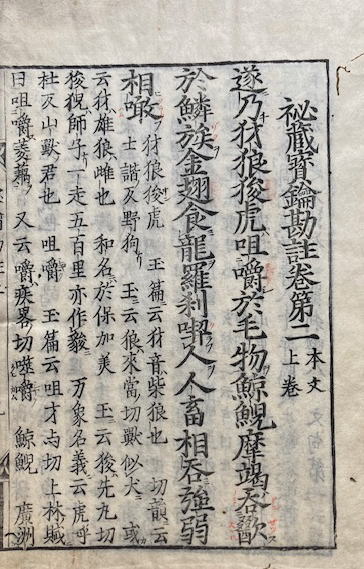 祕藏寶鑰勘註卷第二 本文上卷
遂乃犲狼狻虎咀嚼於毛物鯨鯢摩竭吞歠
於鱗族金翅食龍羅刹喫人人畜相吞強弱
相噉 犲狼狻虎 玉篇云犲音柴狼也 切韻云
士諧反野狗 玉云狼來當切獸似犬 或
云犲雄狼雌也 和名於保加美 玉云狻先丸切
狻猊師子一走五百里亦作㕙 万象名義云虎呼
杜反山獸君也 咀嚼 玉篇云咀才与切上林賦
曰咀嚼菱藕 又云嚼疾畧切噬嚼 鯨鯢 廣洲